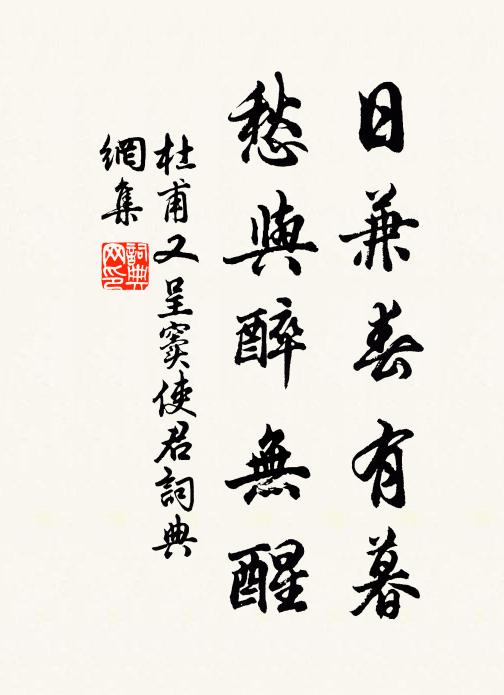 日兼春有暮
愁與醉無醒
杜甫又呈竇使君詞典
網集
詞典
网印